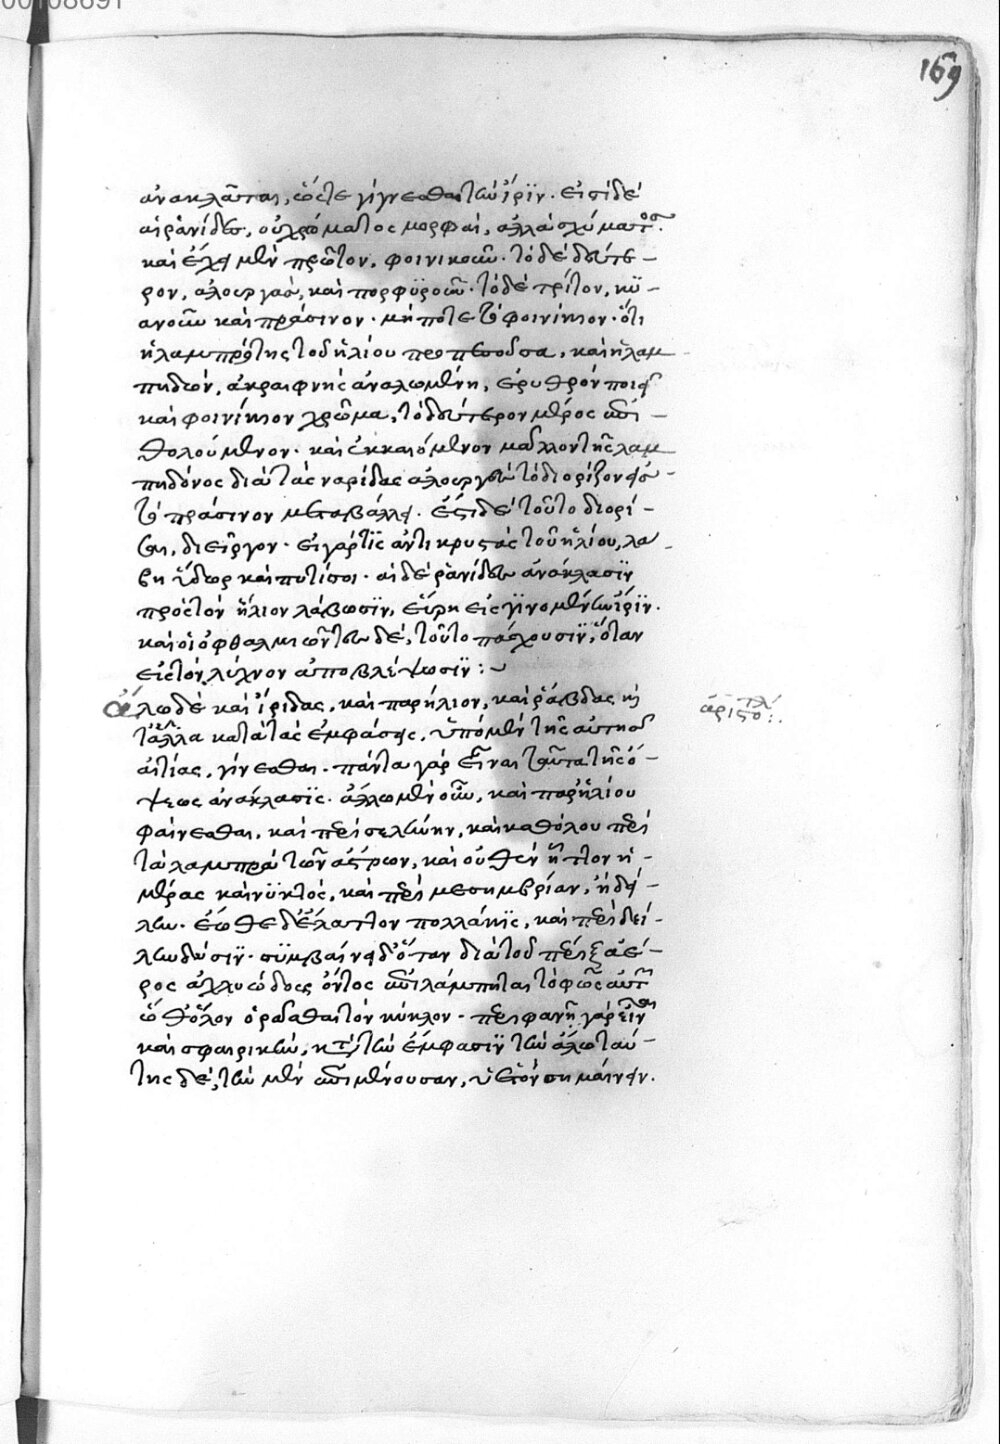 00108691
169
ἀνακλᾶται, ὥστε γίγνεσθαι τὴν ἶρϊν. εἰσὶ δὲ
αἱ ῥανίδες, οὐ χρώματος μορφαὶ, ἀλλὰ σχήματος.
καὶ ἔχει μὲν πρῶτον, φοινικοῦν· τὸ δὲ δεύτε-
ρον, ἁλουργὲς, καὶ πορφϋροῦν· τὸ δὲ τρίτον, κϋ-
ανοῦν καὶ πράσινον. μήποτε τὸ φοινίκιον· ὅτι
ἡ λαμπρότης τοῦ ἡλίου προσπεσοῦσα, καὶ ἡ λαμ-
πηδὼν, ἀκραιφνὴς ἀναλωμένη, ἐρυθρὸν ποιεῖ
καὶ φοινίκιον χρῶμα, τὸ δεύτερον μέρος ἐπι-
θολούμενον. καὶ ἐκκαιόμενον μᾶλλον τῆς λαμ-
πηδόνος διὰ τὰς ῥανίδας ἁλουργὲς τὸ διορίζον
τὸ πράσινον μεταβάλλει. ἔστι δὲ τοῦτο διορί-
σαι, διεῖργον. εἰ γάρ τϊς ἀντικρὺ στὰς τοῦ ἡλίου, λά-
βῃ ὕδωρ καὶ πυτίσοι. αἱ δὲ ῥανίδες ἀνάκλασϊν
πρὸς τὸν ἥλιον λάβωσϊν, εὕρῃ εἰς γϊνομένην ἶρϊν.
καὶ οἱ ὀφθαλμιῶντες δὲ, τοῦτο πάσχουσϊν, ὅταν
εἰς τὸν λύχνον ἀποβλέψωσϊν:
Ἅλω δὲ καὶ ἴριδας, καὶ παρήλιον, καὶ ῥάβδας καὶ
τἆλλα κατὰ τὰς ἐμφάσεις, ὑπὸ μὲν τῆς αὐτῆς
αἰτίας, γίνεσθαι. πάντα γὰρ εἶναι ταῦτα τῆς ὄ-
ψεως ἀνάκλασϊς. ἅλω μὲν οὖν, καὶ παρ' ἡλίου
φαίνεσθαι, καὶ περὶ σελήνην, καὶ καθόλου περὶ
τὰ λαμπρὰ τῶν ἄστρων, καὶ οὐθὲν ἧττον ἡ-
μέρας καὶ νϋκτὸς, καὶ περὶ μεσημβρίαν, ἢ δεί-
λην. ἕωθε δὲ ἔλαττον πολλάκϊς, καὶ περὶ δεί-
λην δύσϊν. σϋμβαίνει δ' ὅταν διὰ τοῦ πέριξ ἀέ-
ρος ἀχλυώδους ὄντος ἐπιλάμπηται τὸ φῶς αὐτῆς
ὥσθ' ὅλον ὁρᾶσθαι τὸν κύκλον. περιφανῆ γὰρ εἶναι
καὶ σφαιρικὴν, καὶ τὴν ἔμφασϊν τὴν ἅλω ταύ-
της δὲ, τὴν μὲν ἐπιμένουσαν, ὑετὸν σημαίνειν.
ἀριστο:.